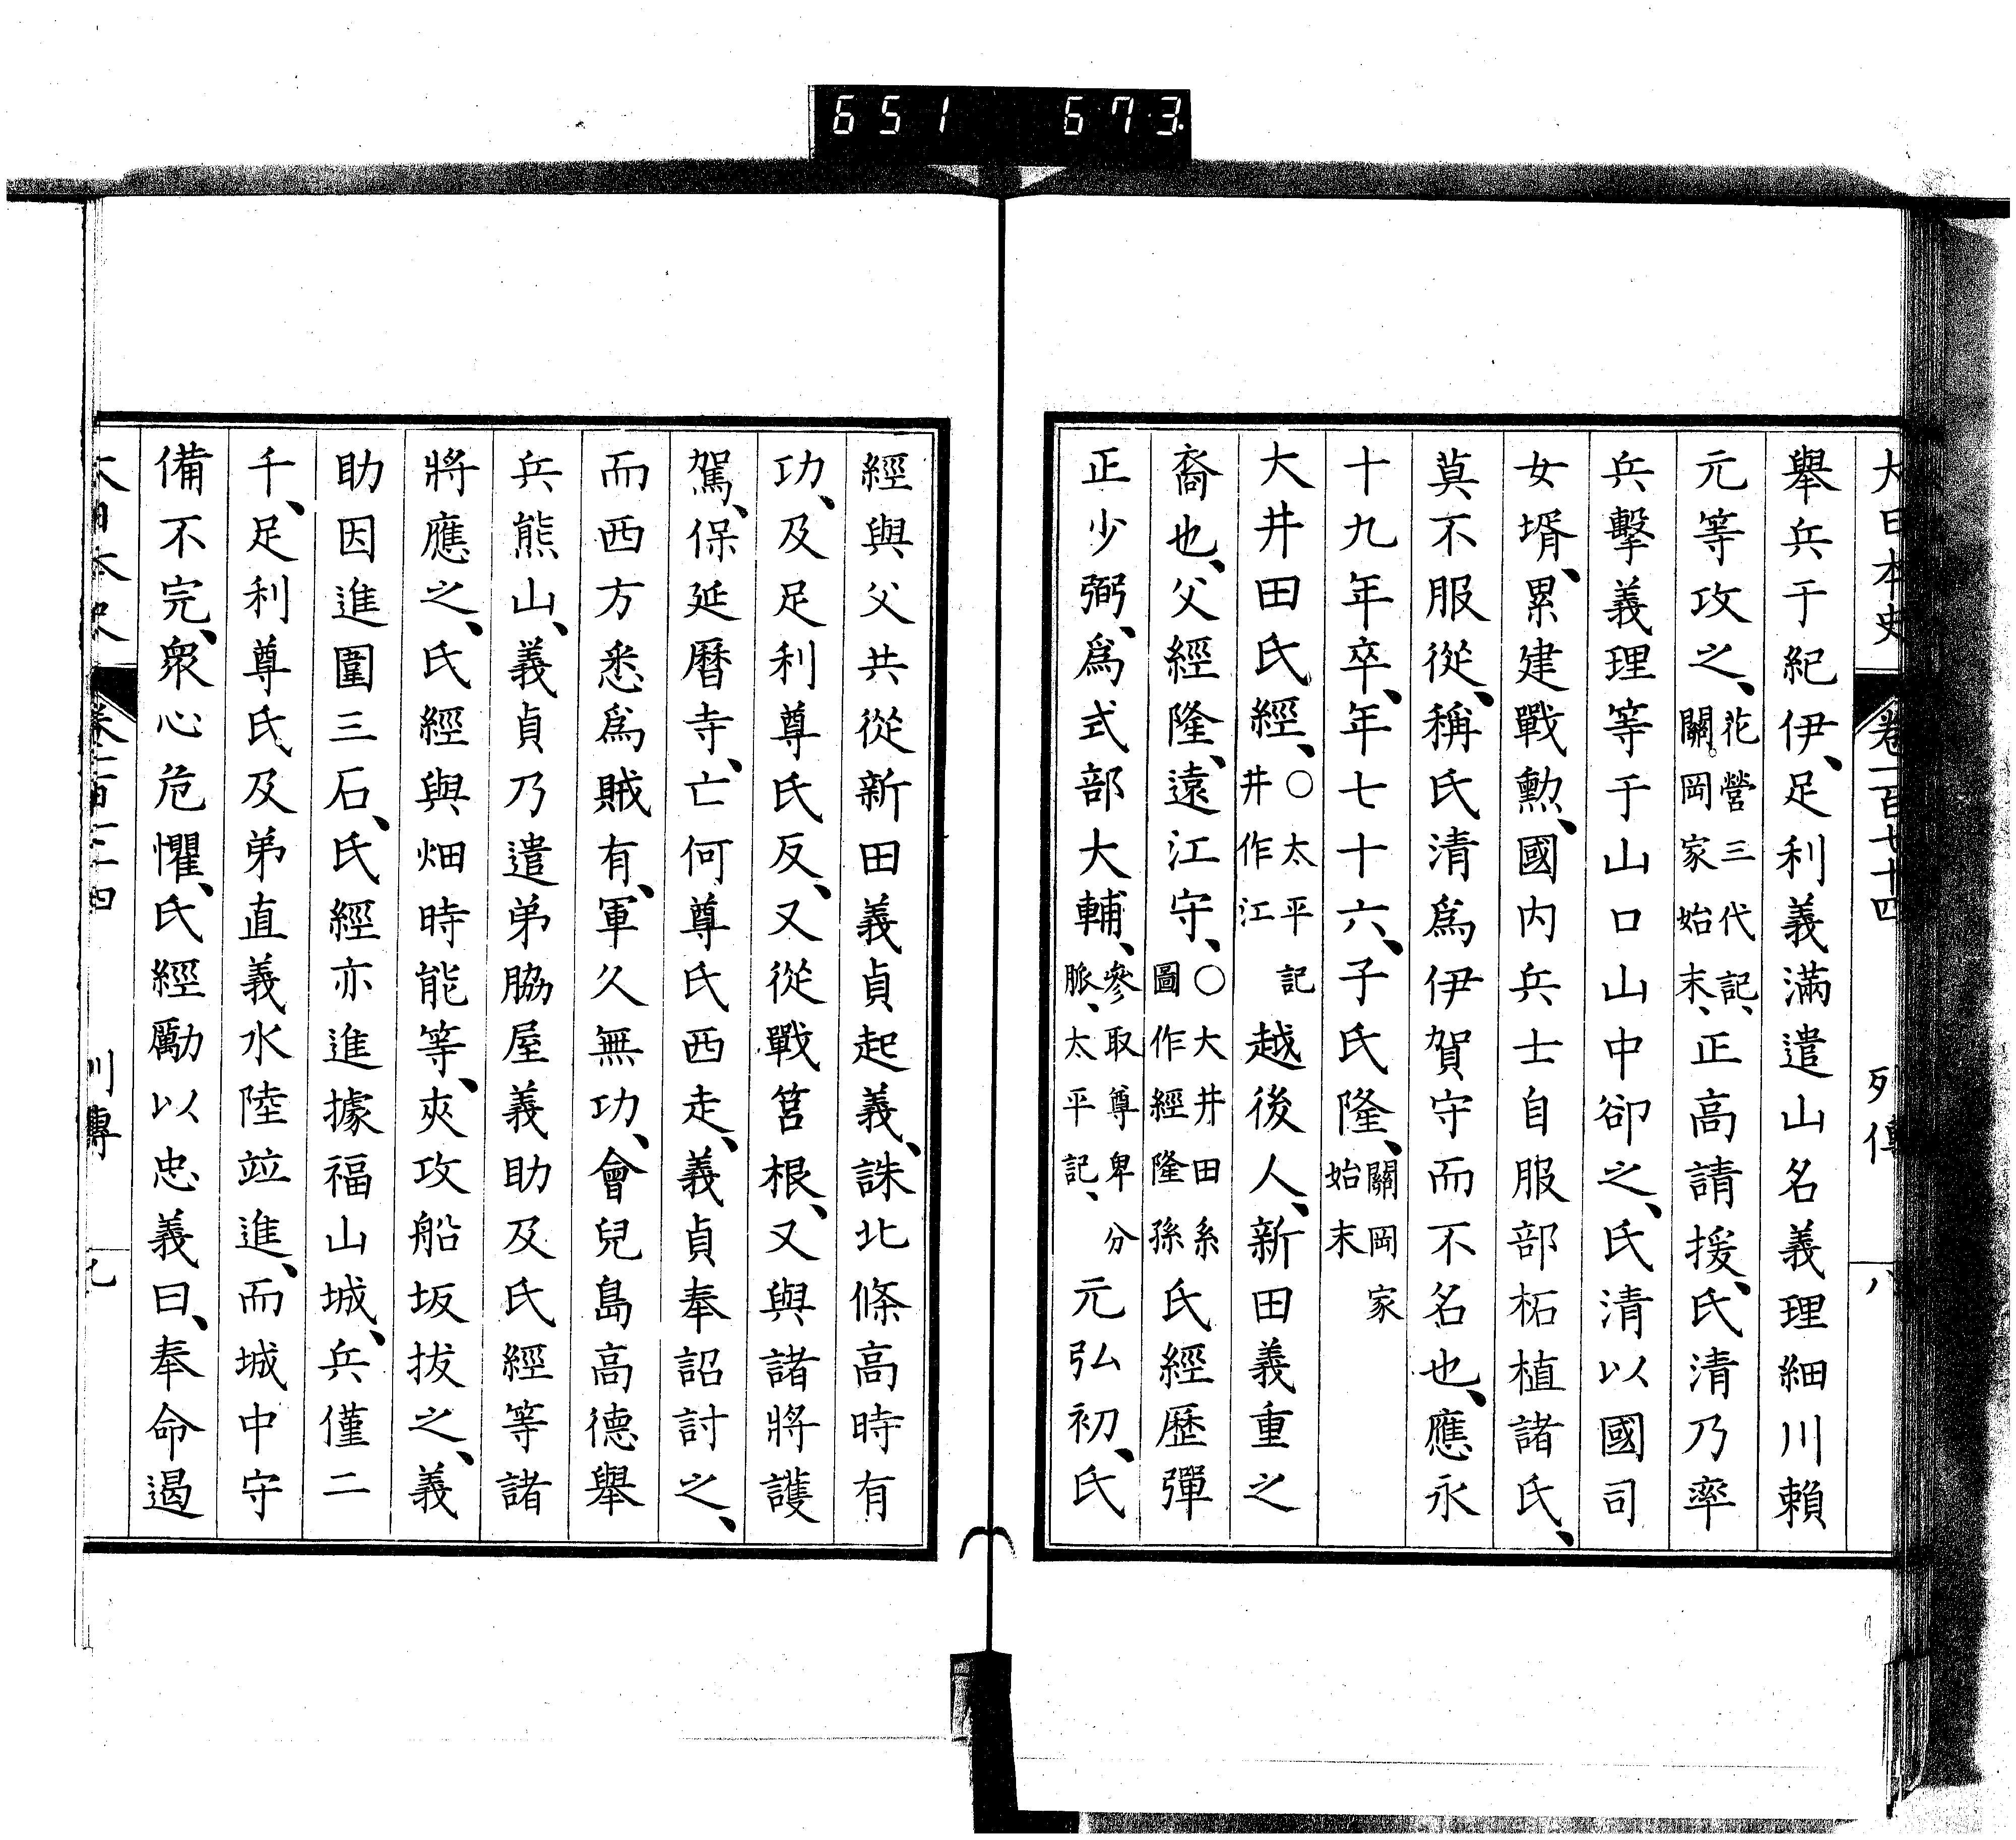 651 673
大日本史 卷一百七十四 列傳 八
舉兵于紀伊、足利義滿遣山名義理細川賴
元等攻之、花營三代記、關岡家始末、正高請援、氏清乃率
兵擊義理等于山口山中卻之、氏清以國司
女壻、累建戰勲、國内兵士自服部柘植諸氏、
莫不服從、稱氏清爲伊賀守而不名也、應永
十九年卒、年七十六、子氏隆、關岡家始末
大井田氏經、○太平記井作江越後人、新田義重之
裔也、父經隆、遠江守、○大井田系圖作經隆孫氏經歷彈
正少弼、爲式部大輔、參取尊卑分脈、太平記、元弘初、氏
經與父共從新田義貞起義、誅北條高時有
功、及足利尊氏反、又從戰筥根、又與諸將護
駕、保延曆寺、亡何尊氏西走、義貞奉詔討之、
而西方悉爲賊有、軍久無功、會兒島高德舉
兵熊山、義貞乃遣弟脇屋義助及氏經等諸
將應之、氏經與畑時能等、夾攻船坂拔之、義
助因進圍三石、氏經亦進據福山城、兵僅二
千、足利尊氏及弟直義水陸竝進、而城中守
備不完、衆心危懼、氏經勵以忠義曰、奉命遏